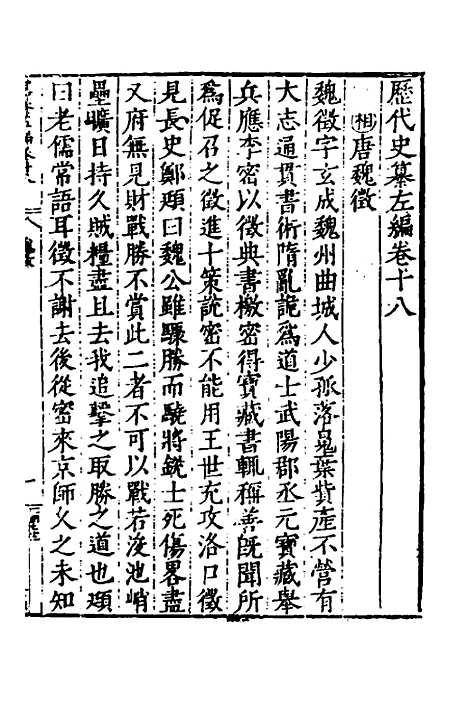 歷代史纂左編卷十八
相唐魏徵
魏徵字玄成魏州曲城人少孤落魄棄貲產不營有
大志通貫書術隋亂詭為道士武陽郡丞元寶藏舉
兵應李密以徵典書檄密得寶藏書輒稱善既聞所
為促召之徵進十策說密不能用王世充攻洛口徵
見長史鄭頲曰魏公雖驟勝而驍將銳士死傷畧盡
又府無見財戰勝不賞此二者不可以戰若浚池峭
壘曠日持久賊糧盡且去我追擊之取勝之道也頲
曰老儒常語耳徵不謝去後從密來京師久之未知